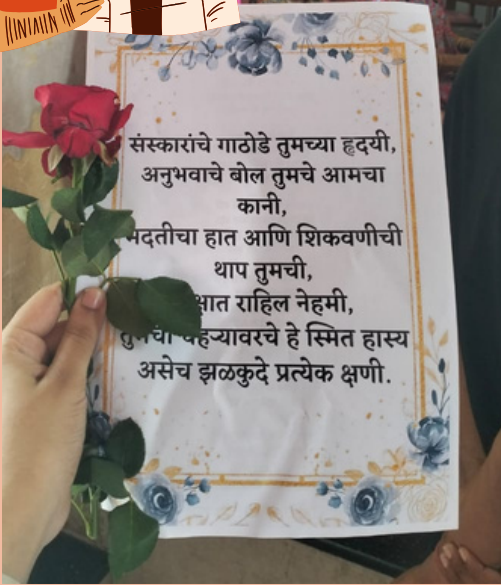 संस्कारांचे गाठोडे तुमच्या हृदयी,
अनुभवाचे बोल तुमचे आमचा
कानी,
मदतीचा हात आणि शिकवणीची
थाप तुमची,
राहिल नेहमी,
चेहऱ्यावरचे हे स्मित हास्य
असेच झळकुदे प्रत्येक क्षणी.